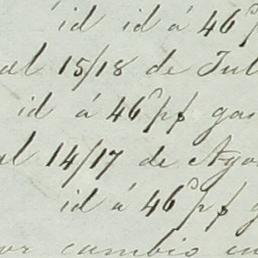 id id á 46 p
al 15/18 de Jul
id á 46 pf gas
al 14/17 de Ago
id á 46 pf g
por cambio en